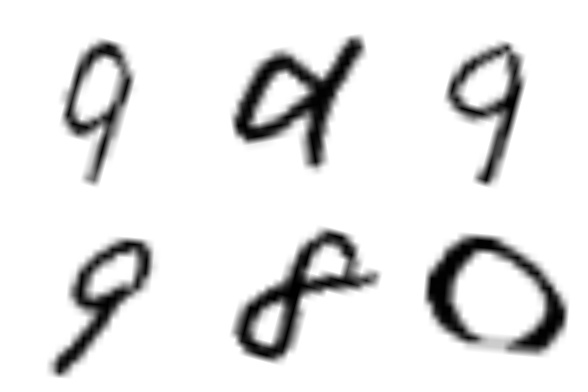 9 9
9 8 0